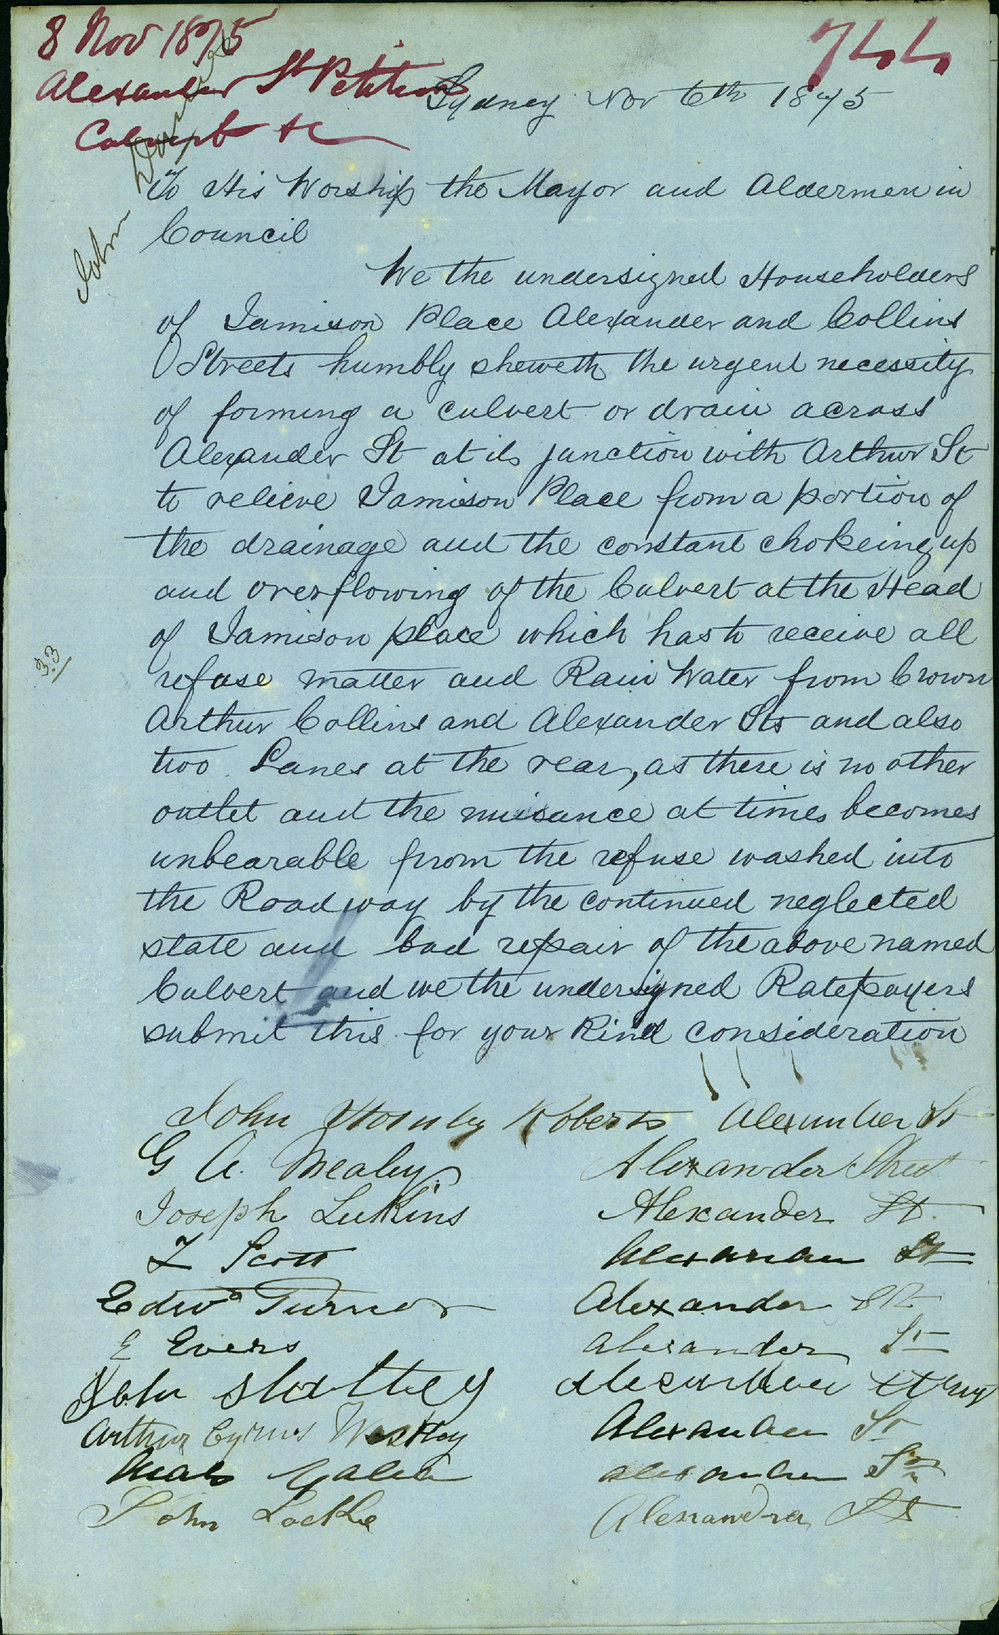 8 Nov 1875
744
Alexander St Petition
Culvert &c
Sydney Nov 6th 1875
John
To His Worship the Mayor and Aldermen in
Council
We the undersigned Householders
of Jamison Place Alexander and Collins
Streets humbly sheweth the urgent necessity
of forming a culvert or drain across
Alexander St at its junction with Arthur St
to relieve Jamison Place from a portion of
the drainage and the constant chokeing up
and overflowing of the Culvert at the Head
of Jamison place which has to receive all
33
refuse matter and Rain Water from Crown
Arthur Collins and Alexander Sts and also
two Lanes at the rear, as there is no other
outlet and the nuisance at times becomes
unbearable from the refuse washed into
the Roadway by the continued neglected
state and bad repair of the above named
Culvert and we the undersigned Ratepayers
submit this for your Kind consideration
John Hornby Roberts Alexander St
G A. Mealey Alexander Street
Joseph Lukins Alexander St.
Scott Alexander St
Edwd Turner Alexander St
E Evers Alexander St
John Alexander
Arthur Cyrus Westley Alexander St
Alexander St
John Locke Alexandra St